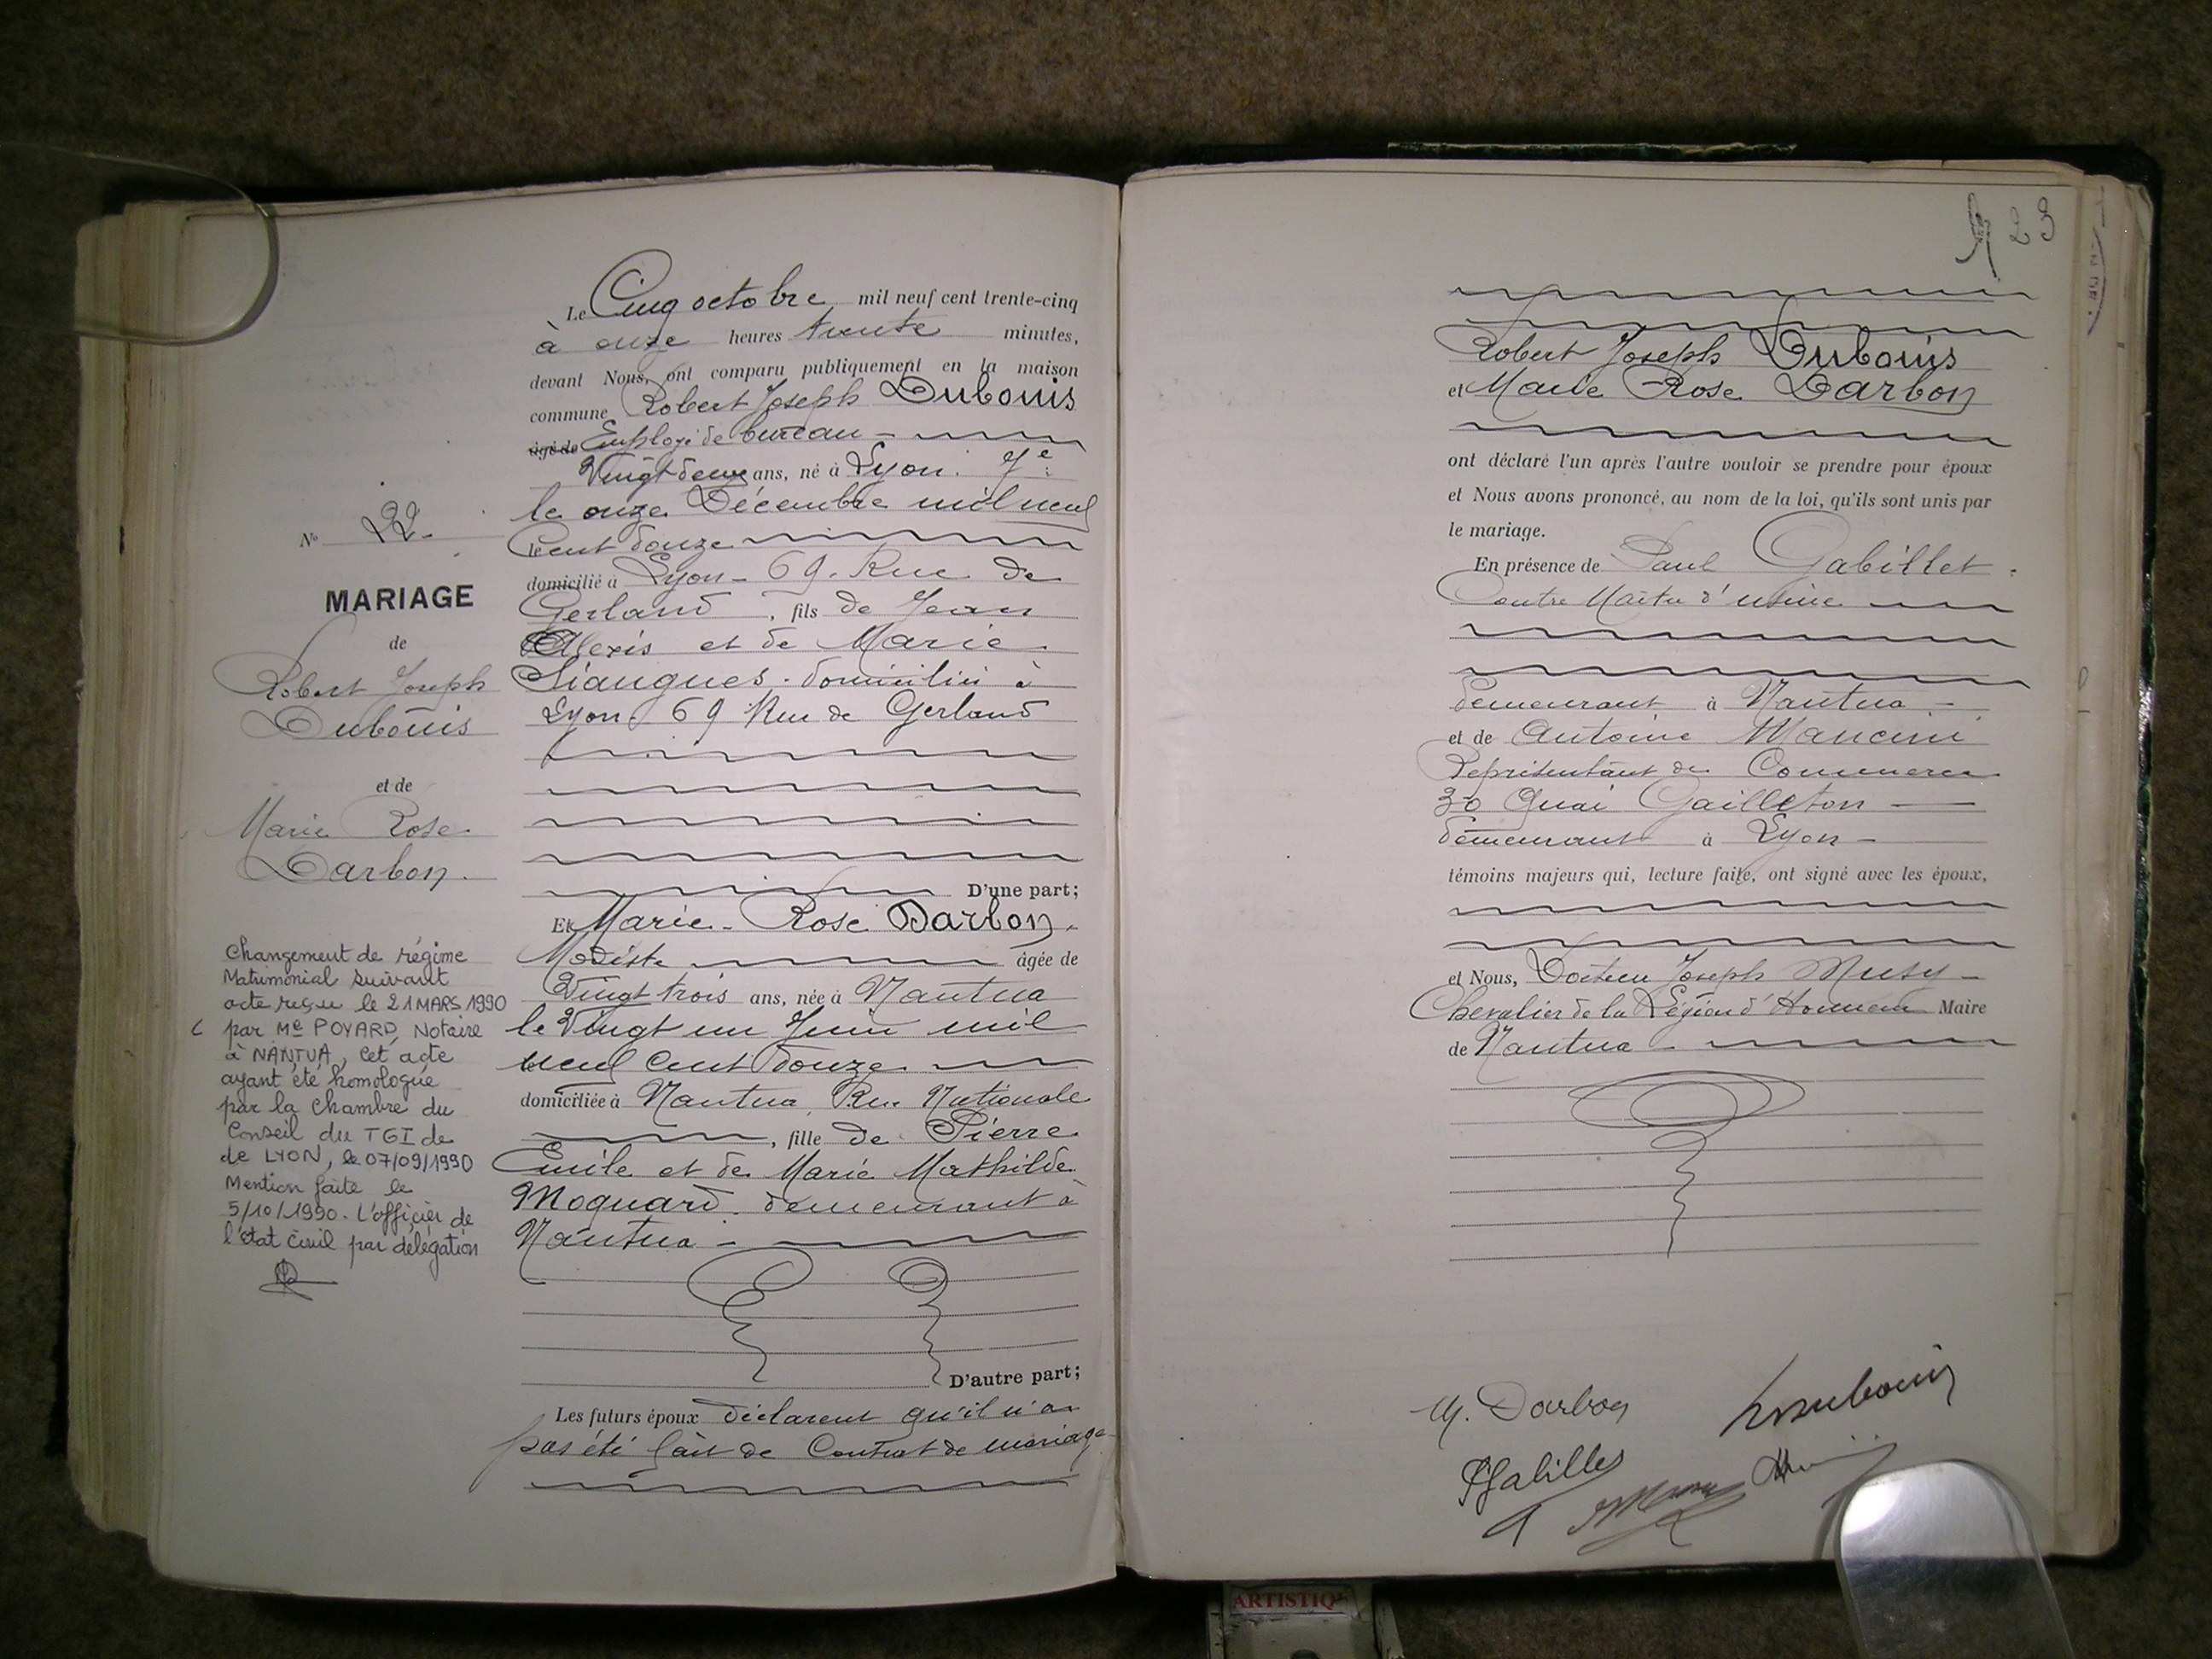 N° 22.
MARIAGE
de
Robert Joseph
Dubouis
et de
Marie Rose
Darbon.
Changement de régime
Matrimonial suivant
acte reçu le 21 MARS 1990
par Me POYARD, Notaire
à NANTUA, cet acte
ayant été homologué
par la chambre du
Conseil du TGI de
de LYON, le 07/09/1990
Mention faite le
5/10/1990. L'officier de
l'état civil par délégation
Le Cinq octobre mil neuf cent trente-cinq
à onze heures trente minutes,
devant Nous, ont comparu publiquement en la maison
commune Robert Joseph Dubouis
âgé de Employé de bureau
Vingt deux ans, né à Lyon. 7e
le onze Décembre mil neuf
Cent douze
domicilié à Lyon - 69. Rue de
Gerland, fils de Jean
Alexis et de Marie
Siaugues. domiciliés à
Lyon. 69 Rue de Gerland
D'une part;
Et Marie - Rose Darbon.
Modiste âgée de
Vingt trois ans, née à Nantua
le Vingt un Juin mil
neuf Cent douze
domiciliée à Nantua Rue Nationale
, fille de Pierre
Emile et de Marie Mathilde
Moquard. demeurant à
Nantua -
D'autre part;
Les futurs époux déclarent qu'il n'a
pas été fait de Contrat de mariage
23
Robert Joseph Dubouis
et Marie Rose Darbon
ont déclaré l'un après l'autre vouloir se prendre pour époux
et Nous avons prononcé, au nom de la loi, qu'ils sont unis par
le mariage.
En présence de Paul Gabillet.
Contre Maître d'usine
demeurant à Nantua -
et de Antoine Mancini
Représentant de Commerce
30 Quai Gailleton
demeurant à Lyon -
témoins majeurs qui, lecture faite, ont signé avec les époux,
et Nous, Docteur Joseph Musy -
Chevalier de la Légion d'Honneur Maire
de Nantua -
M. Darbon
Dubouis
PGabillet
ARTISTIQ